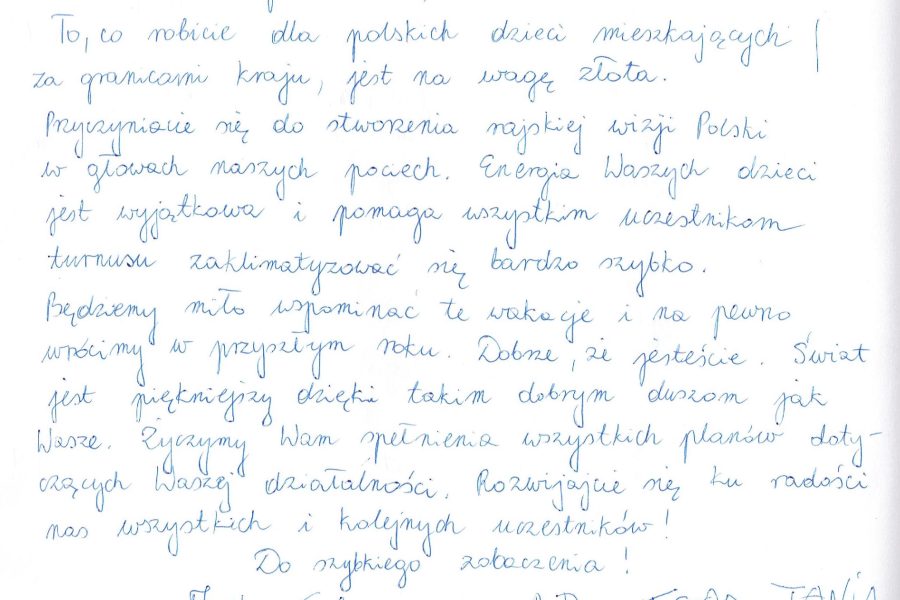 To, co robicie dla polskich dzieci mieszkających
za granicami kraju, jest na wagę złota.
Przyczyniacie się do stworzenia rajskiej wizji Polski
w głowach naszych pociech. Energia Waszych dzieci
jest wyjątkowa i pomaga wszystkim uczestnikom
turnusu zaklimatyzować się bardzo szybko.
Będziemy miło wspominać te wakacje i na pewno
wrócimy w przyszłym roku. Dobrze, że jesteście. Świat
jest piękniejszy dzięki takim dobrym duszom jak
Wasze. Życzymy Wam spełnienia wszystkich planów doty-
czących Waszej działalności. Rozwijajcie się ku radości
nas wszystkich i kolejnych uczestników!
Do szybkiego zobaczenia!